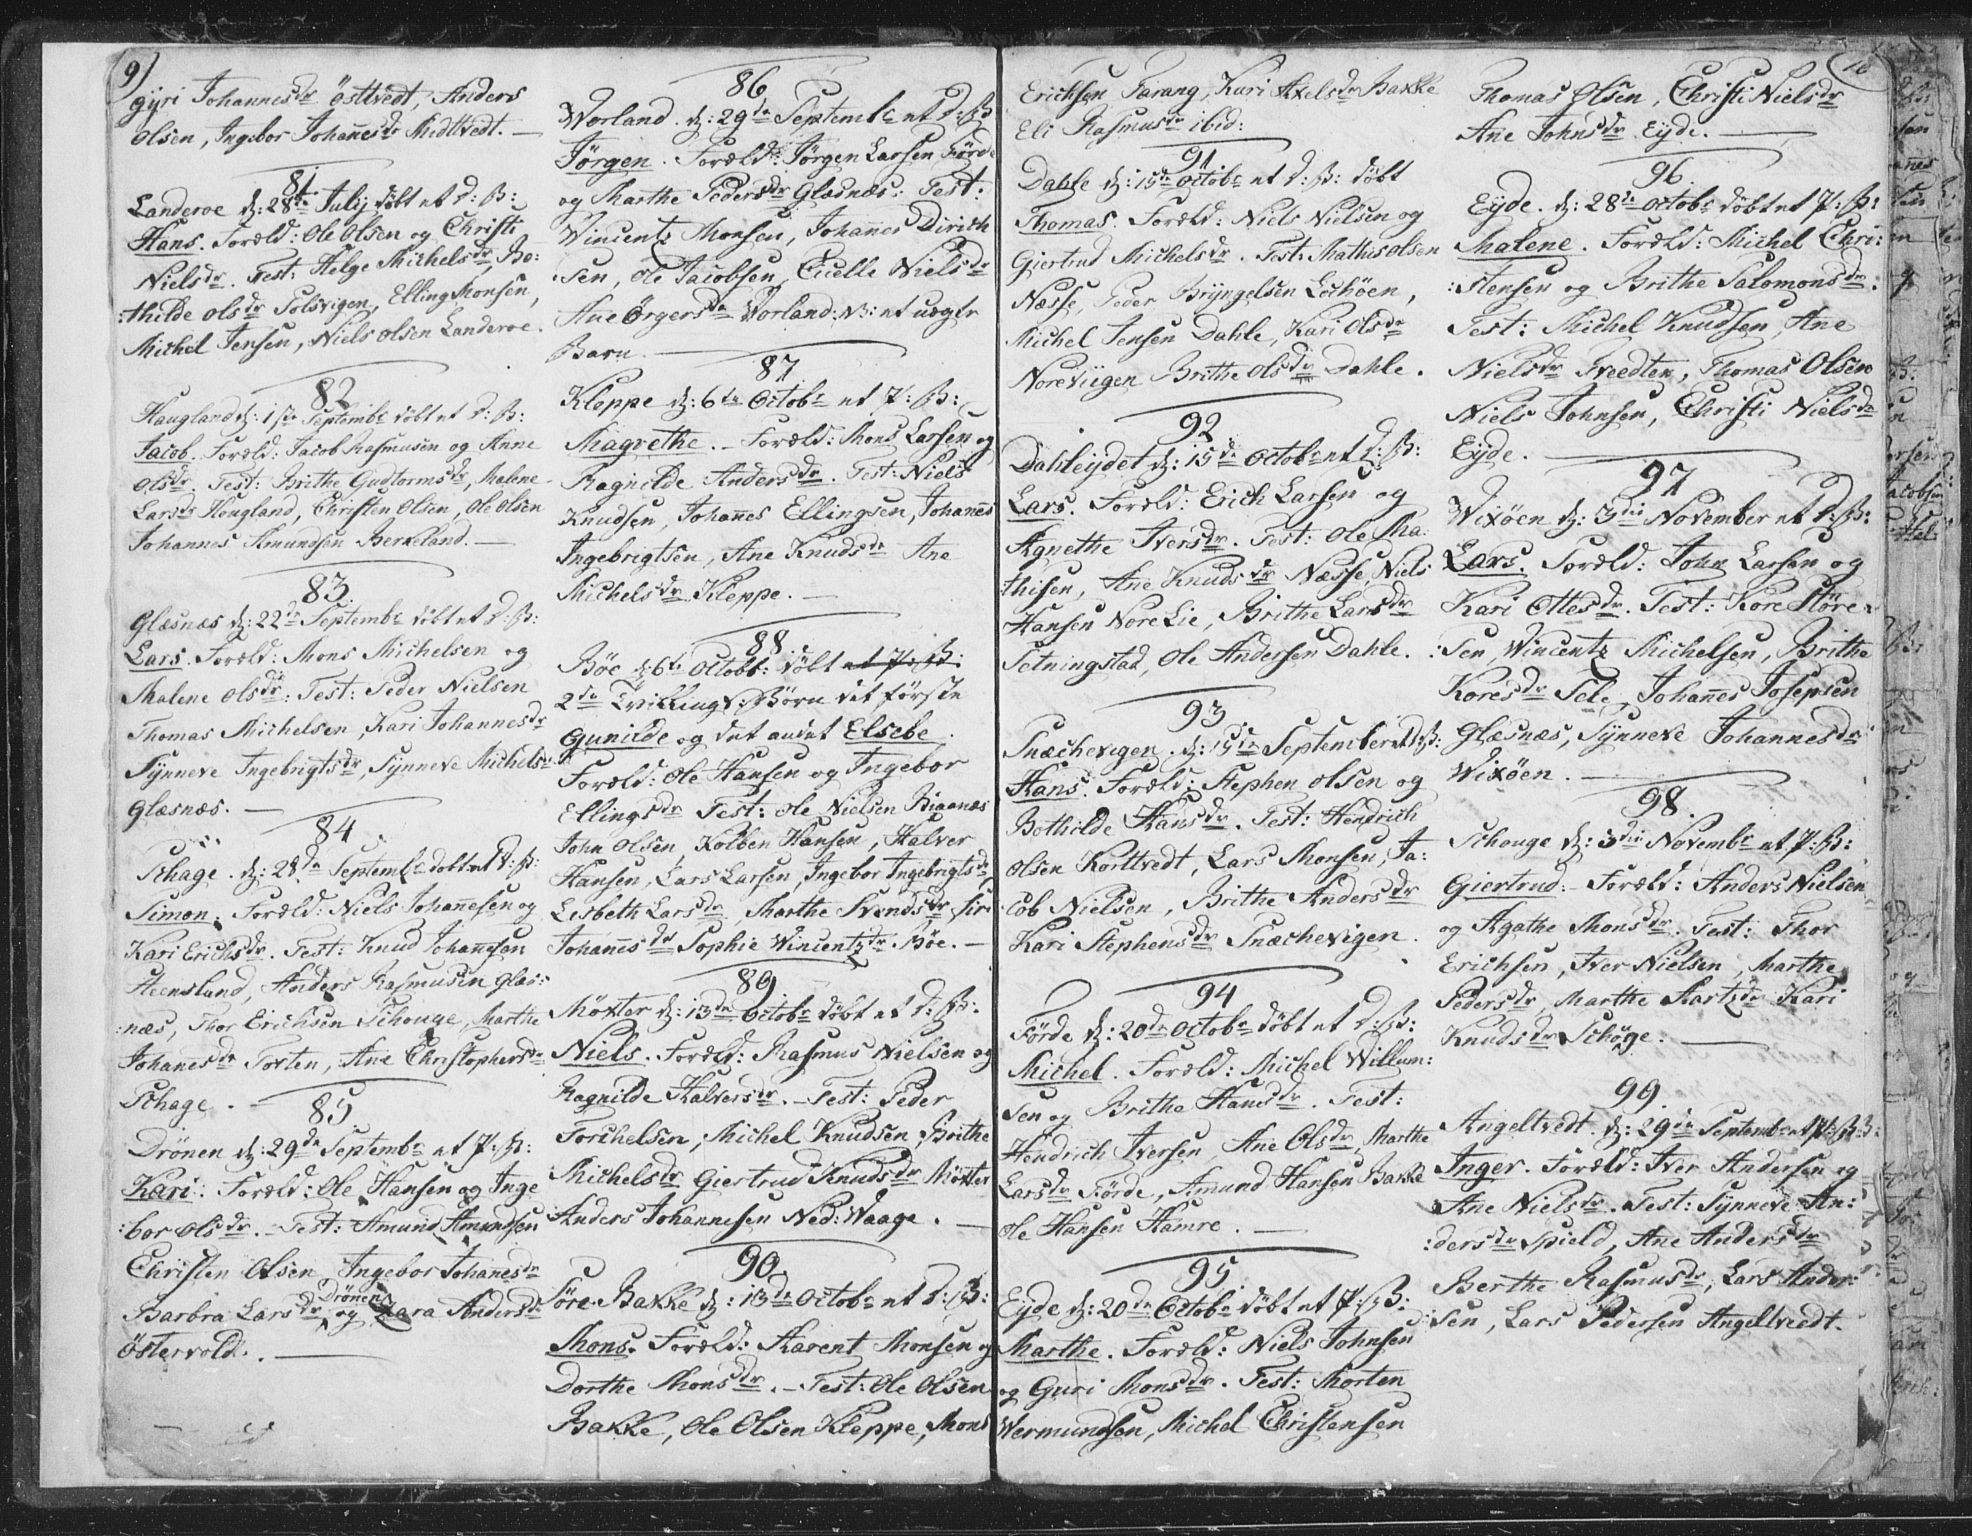 9)
Gyri Johannesdr Östtvedt, Anders
Olsen, Ingebor Johanesdr Midtvedt. —
81
Landeroe d: 28de Julij döbt et D: B:
Hans. Foreld: Ole Olsen og Christi
Nielsdr. Test: Helge Michelsdr, Bo:
:thilde Olsdr Solsvigen, Elling Monsen,
Michel Jensen, Niels Olsen Landeroe.
82
Haugland d: 1ste Septembr döbt et D: B:
Jacob. Foreld: Jacob Rasmusen og Anne
Olsdr. Test: Brithe Gudtormsdr, Malene
Larsdr Hougland, Christen Olsen, Ole Olsen
Johannes Amundsen Berkeland. —
83.
Glæsnæs d: 22de Septembr döbt et D: B:
Lars. Foreld: Mons Michelsen og
Malene Olsdr: Test: Peder Nielsen
Thomas Michelsen, Kari Johannesdr
Synneve Ingebrigtsdr, Synneve Michelsdr
Glæsnæs. —
84
Schage. d: 28de Septembr döbt et D: B:
Simon. Foreld: Niels Johanesen og
Kari Erichsdr. Test: Knud Johannesen
Steensland, Anders Rasmusen Glæs:
:næs, Thor Erichsen Schouge, Marthe
Johanesdr Torten, Ane Christophersdr
Schage. —
85
Drönen d: 29de Septembr et P: B:
Kari. Foreld: Ole Hansen og Inge
:bor Olsdr. Test: Amund Amundsen
Christen Olsen, Ingebor Johanesdr
Drönen
Barbra Larsdr og Zara Andersdr
Östervold. —
86
Worland. d: 29de Septembr et D: B:
Jörgen. Foreld: Jörgen Larsen Förde
og Marthe Pedersdr Glæsnæs: Test:
Wincentz Monsen, Johanes Dirich
:sen, Ole Jacobsen, Cicelle Nielsdr
Ane Örgersdr Worland: N: et uægte
Barn. —
87
Kleppe d: 6te Octobr et P: B:
Magrethe. — Foreld: Mons Larsen og
Ragnilde Andersdr. Test: Niels
Knudsen, Johannes Ellingsen, Johanes
Ingebrigtsen, Ane Knudsdr Ane
Michelsdr Kleppe. —
88.
Böe d: 6te Octobr: döbt et P: B:
2de Tvilling: Börn det förste
Gunilde og det andet Elsebe.
Foreld: Ole Hansen og Ingebor
Ellingsdr Test: Ole Nielsen Biaanæs
John Olsen Kolben Hansen, Halver
Hansen, Lars Larsen, Ingebor Ingebrigtsdr
Lisbeth Larsdr, Marthe Svendsdr, Siri
Johanesdr Sophie Wincentzdr Böe. —
89
Möxter d: 13de Octobr döbt et D: B:
Niels. Foreld: Rasmus Nielsen og
Ragnilde Halversdr. — Test: Peder
Torchelsen, Michel Knudsen, Brithe
Michelsdr Giertrud Knudsdr Möxter
Anders Johannesen Ned: Waage. —
90.
Söre Bakke d: 13de Octobr et D: B:
Mons. Foreld: Aarent Monsen og
Dorthe Monsdr. — Test: Ole Olsen
Bakke, Ole Olsen Kleppe, Mons
Erichsen Farang, Kari Axelsdr Bakke
Eli Rasmusdr ibid:
91
Dahle d: 15de Octobr et D: B: döbt
Thomas. Foreld: Niels Nielsen og
Giertrud Michelsdr. Test: Mathis Olsen
Næsse, Peder Bryngelsen Lochöen,
Michel Jensen Dahle, Kari Olsdr
Noreviigen Brithe Olsdr Dahle.
92
Dahleiydet d: 15de Octobr et D: B:
Lars. Foreld: Erich Larsen og
Agnethe Iversdr. Test: Ole Ma:
thisen, Ane Knudsdr Næsse, Niels
Hansen Nore Lie, Brithe Larsdr
Tetningstad, Ole Andersen Dahle.
93
Snæchevigen. d: 15de September et D: B:
Hans. Foreld: Stephen Olsen og
Bothilde Hansdr. Test: Hendrich
Olsen Korttvedt, Lars Monsen, Ja:
cob Nielsen, Brithe Andersdr
Kari Stephensdr Snæchevigen.
94
Förde d: 20de Octobr döbt et D: B:
Michel. Foreld: Michel Willum:
sen og Brithe Hansdr. Test:
Hendrich Iversen, Ane Olsdr, Marthe
Larsdr Förde, Amund Hansen Bakke
Ole Hansen Hamre. —
95.
Eyde d: 20de Octobr döbt et P: B:
Marthe. Foreld: Niels Johnsen
og Guri Monsdr. Test: Morten
Wermundsen, Michel Christensen
10
Thomas Olsen, Christi Nielsdr
Ane Johnsdr Eyde. —
96
Eyde. d: 28de Octobr döbt et P: B:
Malene. Foreld: Michel Chri:
:stensen og Brithe Salomonsdr.
Test: Michel Knudsen, Ane
Nielsdr Tveedten, Thomas Olsen
Niels Johnsen, Christi Nielsdr
Eyde. —
97
Wixöen d: 3die November et D: B:
Lars. Foreld: John Larsen og
Kari Ottesdr. Test: Kore Störe:
:sen, Wincentz Michelsen, Brithe
Koresdr Tele, Johannes Josepsen
Glæsnæs, Synneve Johannesdr
Wixöen. —
98.
Schouge d: 3die Novembr et P: B:
Giertrud: — Foreld: Anders Nielsen
og Agathe Monsdr. Test: Thor
Erichsen, Iver Nielsen, Marthe
Pedersdr, Marthe Aartzdr Kari
Knudsdr Schöge. —
99.
Angeltvedt. d: 29de Septembr et P: B:
Inger. Foreld: Iver Andersen og
Ane Nielsdr. Test: Synneve An:
:dersdr Spield, Ane Andersdr
Berthe Rasmusdr, Lars Ander:
:sen, Lars Pedersen Angeltvedt.